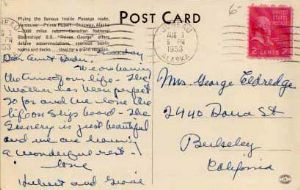 POST CARD
Plying the famous Inside Passage route,
Vancouver - Prince Rupert - Skagway, Alaska
"Prince George"
AUG 3
1953
ALASKA
2 CENTS 2
Dear Aunt
We are having
the time of our life - The
weather has been perfect
so far and we love the
life on ship board - The
scenery is just beautiful
and we are having
a wonderful rest -
Love
Hubert and
Mrs. George Eldredge
2440 Dana St
Berkeley
California